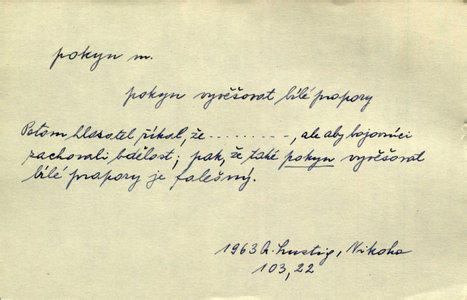 pokyn m.
pokyn vyvěšovat bílé prapory
Potom hlasatel říkal, že ........., ale aby bojovníci
zachovali bdělost; pak, že také pokyn vyvěšovat
bílé prapory je falešný.
1963 A. Lustig, Nikoho
103, 22